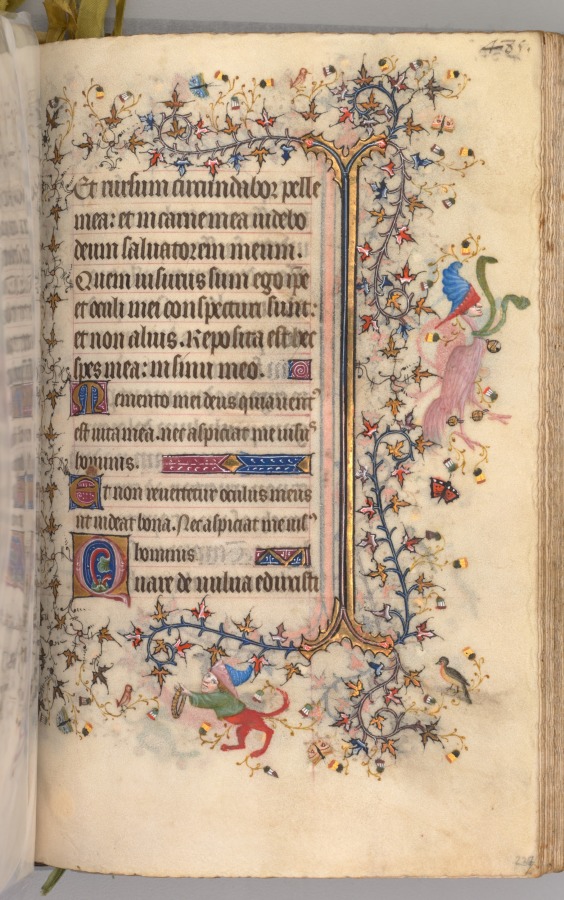 Et rursum circundabor pelle
mea: et in carne mea videbo
deum saluatorem meum.
Quem uisurus sum ego ip̄e
et oculi mei conspecturi sunt:
et non alius. Reposita est hec
spes mea: in sinu meo.
Memento mei deus quia uent᷒
est uita mea. nec aspiciat me uisꝯ
hominis.
Et non reuertetur oculus meus
ut uideat bona. Nec aspiciat me uis᷒
hominis
Quare de uulua eduxisti